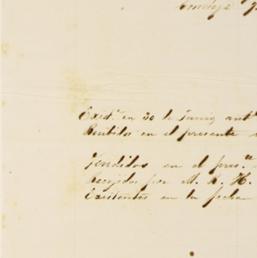 Exist. en 30 de Junio ant.
Recibidos en el presente
Vendidos en el pres.te
Recojidos por M. A. H.
Existentes en la fecha